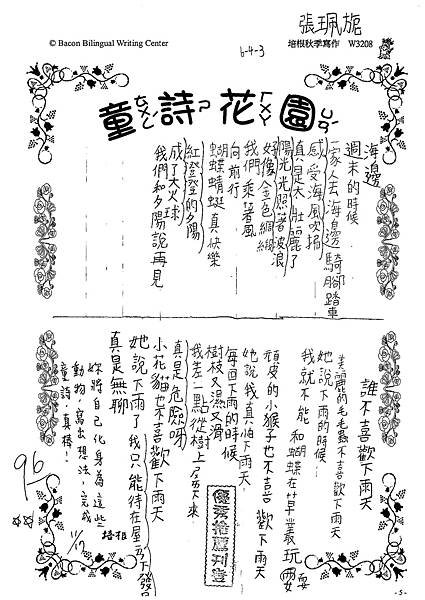 張珮旎
© Bacon Bilingual Writing Center
6-4-3
培根秋季寫作 W3208
童詩花園
ㄊㄨㄥˊ ㄕ ㄏㄨㄚ ㄩㄢˊ
海邊
週末的時候
一家人去海邊騎腳踏車
感受海風吹拂
真是太壯麗了
陽光光照著波浪
好像金色綢緞
我們乘著風
向前行
蝴蝶蜻蜓真快樂
紅澄澄的夕陽
成了大火球
我們和夕陽說再見
誰不喜歡下雨天
美麗的毛毛蟲不喜歡下雨天
她說下雨的時候
我就不能和蝴蝶在草叢玩耍
頑皮的小猴子也不喜歡下雨天
她說我真怕下雨天
每回下雨的時候
樹枝又濕又滑
我差一點從樹上
下來
真是危險呀
小花貓也不喜歡下雨天
她說下雨了我只能待在屋
下發呆
真是無聊
妳將自己化身為這些
動物,寫出想法,完成
童詩,真棒!
優秀推薦刊登
培根
11/17
96
-5-